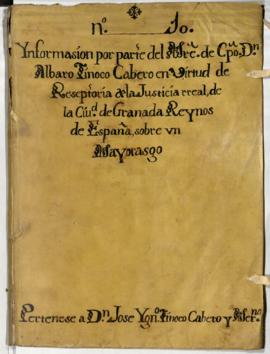 nº. 10.
Ynformasion por parte del Mrẽ. de Cpõ. Dn
Albaro Tinoco Cabero en virtud de
Reseptoria de la Justicia rreal, de
la Ciud. de Granada Reynos
de España, sobre vn
Mayorasgo
Pertenese a Dn Jose Ygno. Tinoco Cabero y